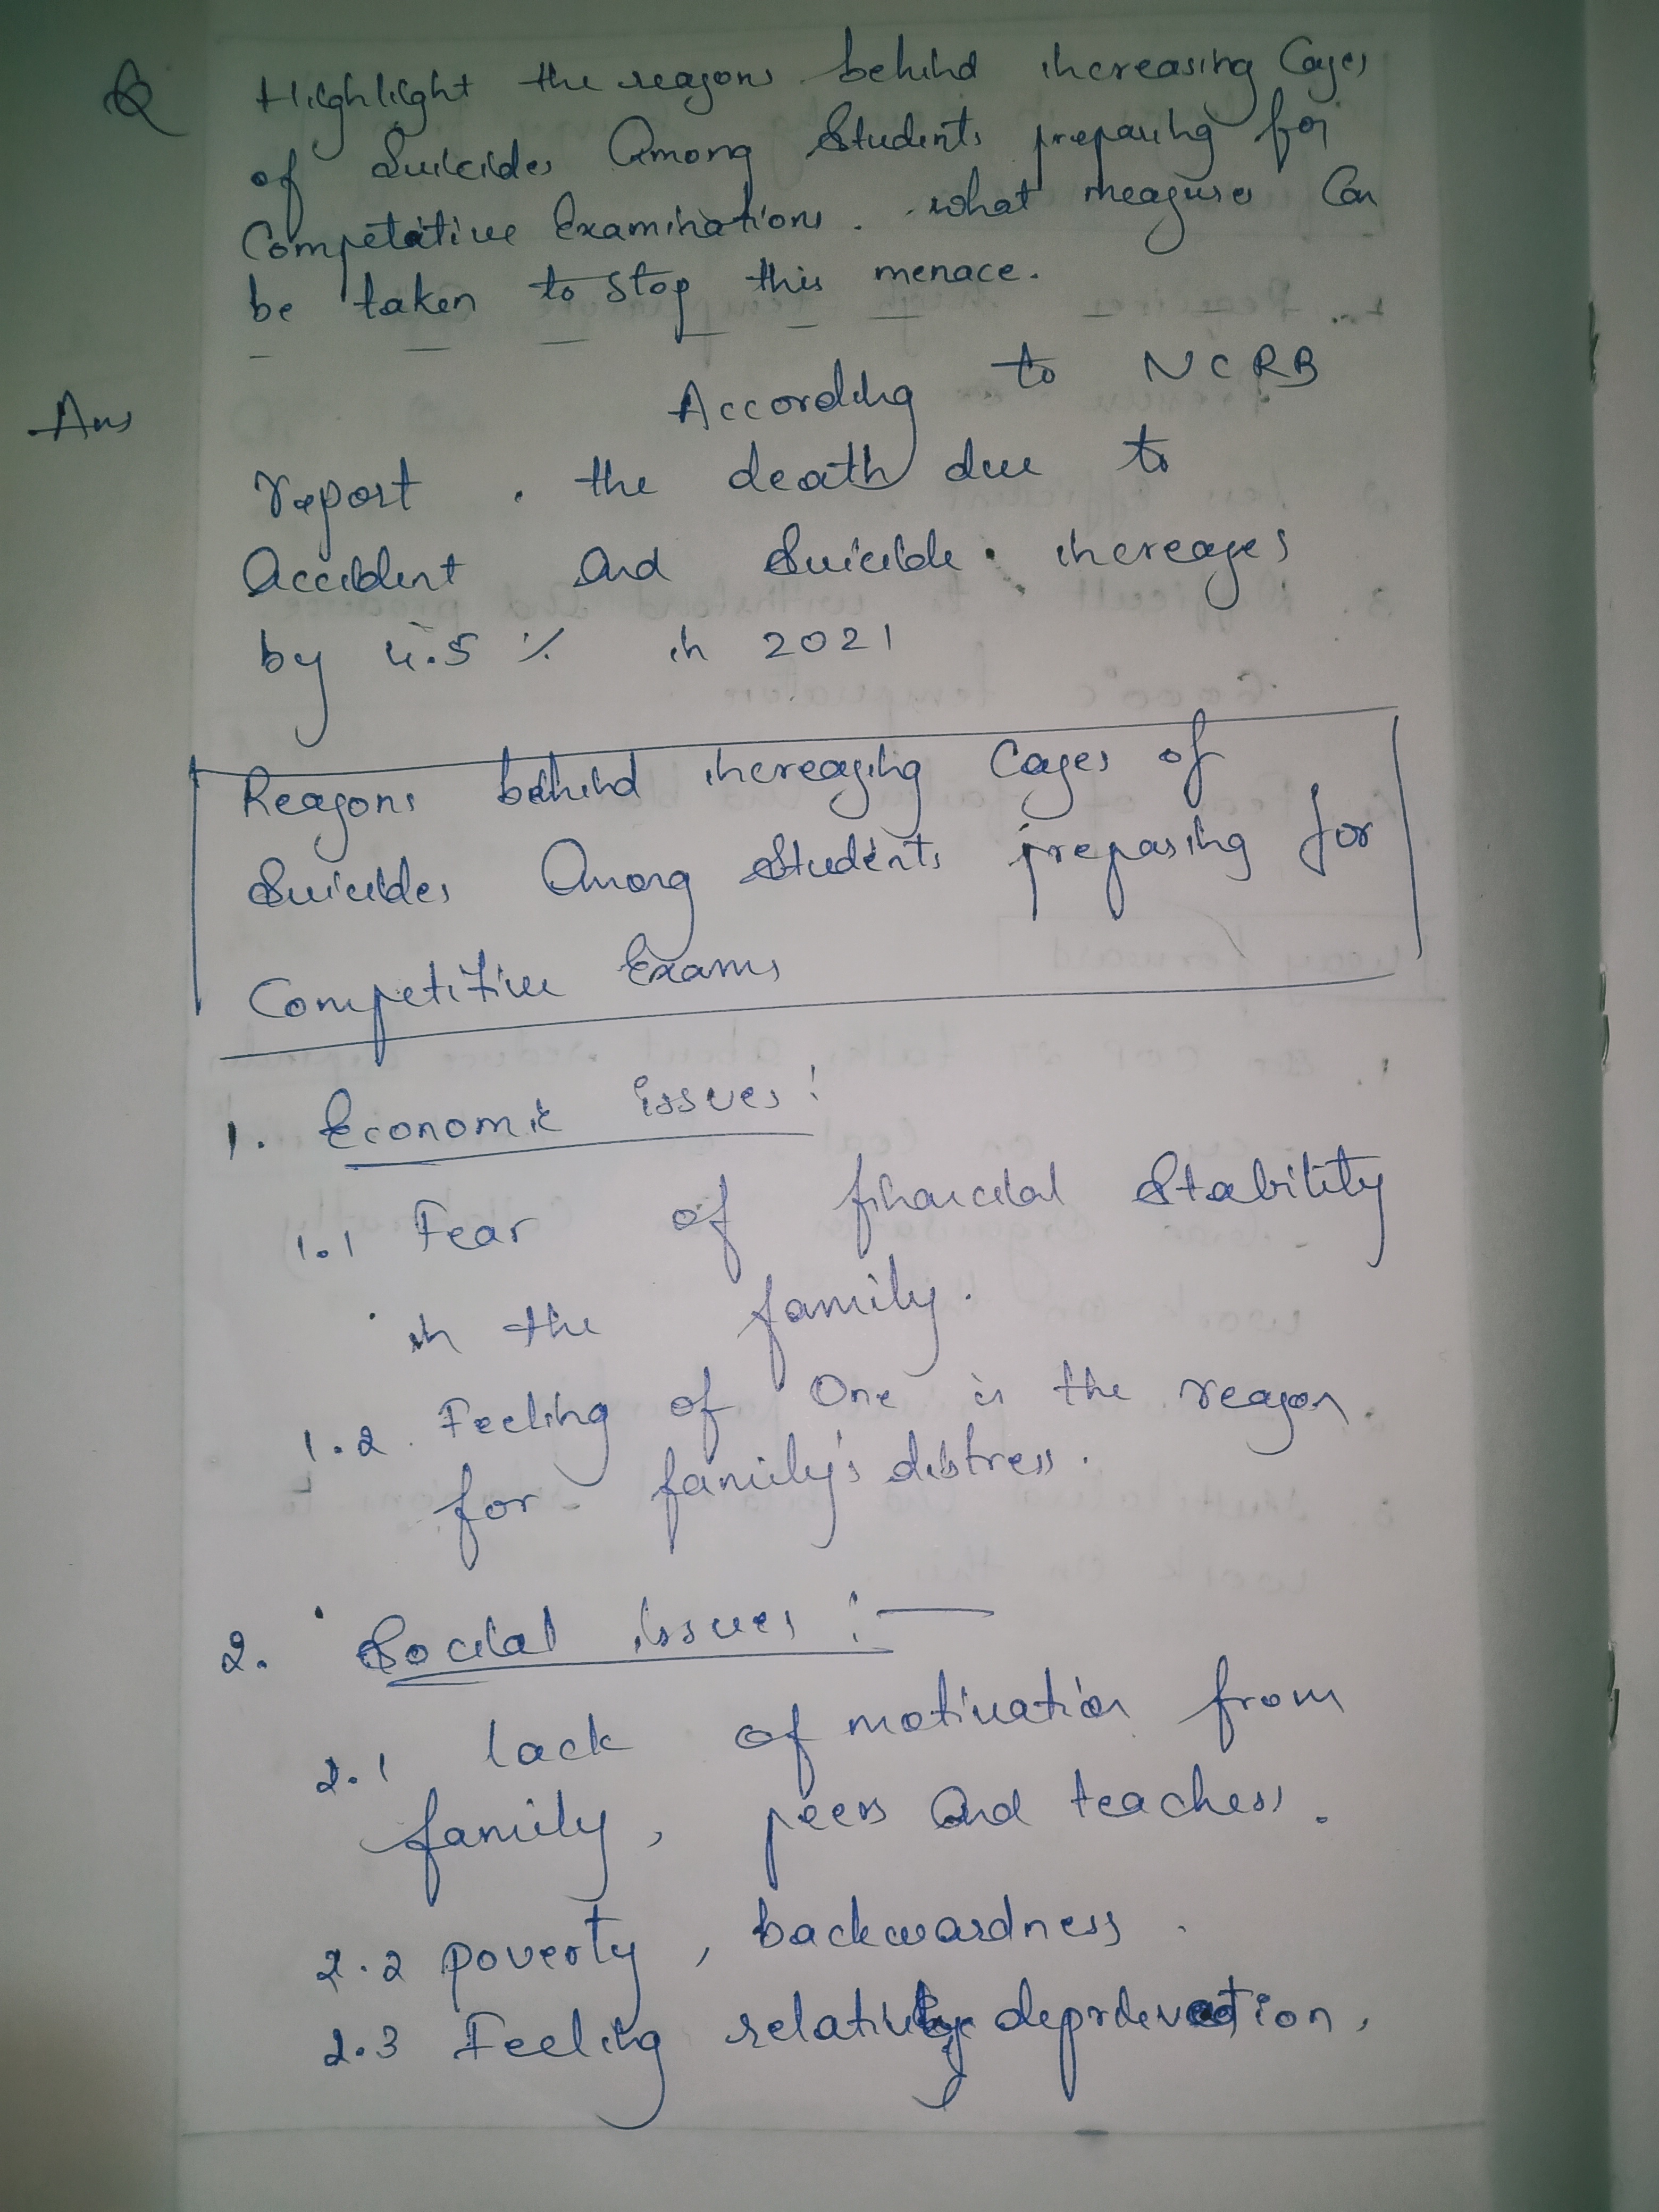 Q Highlight the reasons behind increasing Cases
of Suicides Among Students preparing for
Competative Examinations. what measures Can
be taken to stop this menace.
Ans According to NCRB
report, the death due to
Accident and Suicide increases
by 4.5 % in 2021
Reasons behind increasing Cases of
Suicides Among Students preparing for
Competitive Exams
1. Economic issues:
1.1 Fear of financial Stability
in the family.
1.2 Feeling of One is the reason
for family's distress.
2. Social issues :—
2.1 lack of motivation from
family, peers and teachers.
2.2 poverty, backwardness.
2.3 Feeling relative deprivation,